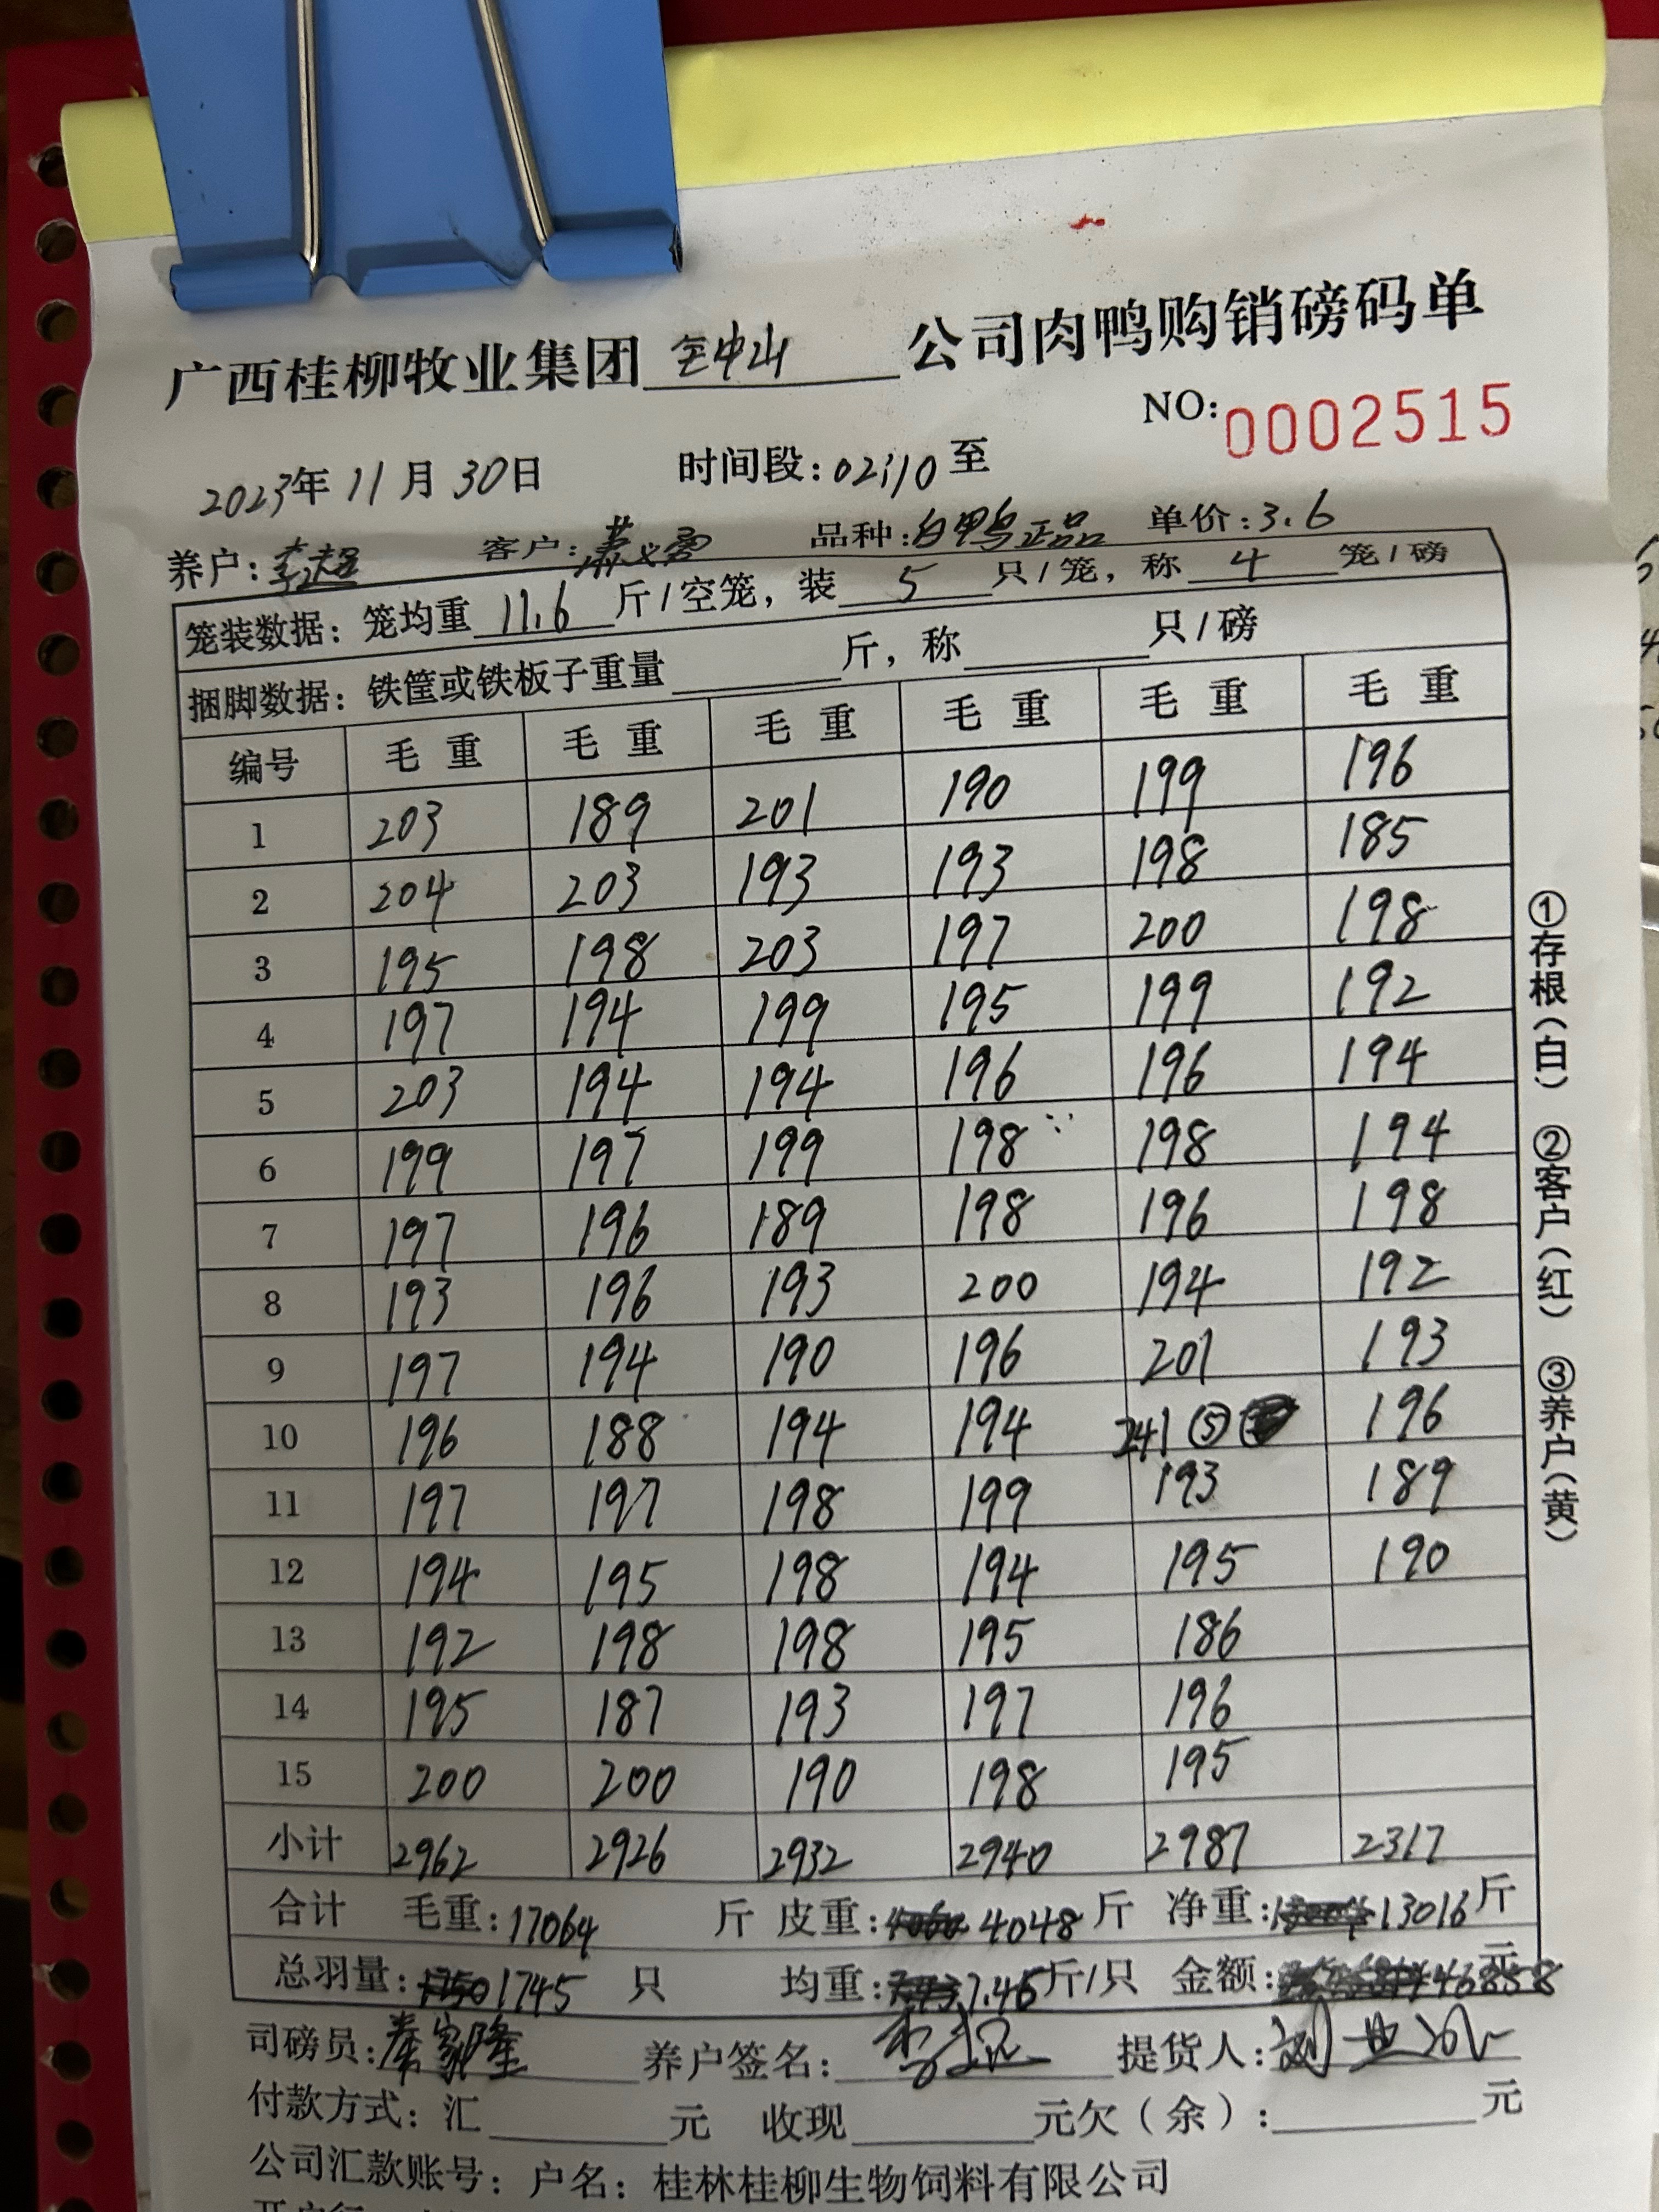 广西桂柳牧业集团 钟山 公司肉鸭购销磅码单
NO:0002515
2023年11月30日 时间段:02:10至
养户:李超 客户: 品种:白鸭正品 单价:3.6
笼装数据:笼均重11.6斤/空笼,装5只/笼,称4笼/磅
捆脚数据:铁筐或铁板子重量 斤,称 只/磅
编号 毛重 毛重 毛重 毛重 毛重 毛重
1 203 189 201 190 199 196
2 204 203 193 193 198 185
3 195 198 203 197 200 198
4 197 194 199 195 199 192
5 203 194 194 196 196 194
6 199 197 199 198 198 194
7 197 196 189 198 196 198
8 193 196 193 200 194 192
9 197 194 190 196 201 193
10 196 188 194 194 241 ⑤ 196
11 197 197 198 199 193 189
12 194 195 198 194 195 190
13 192 198 198 195 186
14 195 187 193 197 196
15 200 200 190 198 195
小计 2962 2926 2932 2940 2987 2317
合计 毛重:17064斤 皮重:4048斤 净重:13016斤
总羽量:1745只 均重:7.46斤/只 金额:46858元
司磅员:秦家隆 养户签名:李超 提货人:
付款方式:汇 元 收现 元欠(余): 元
公司汇款账号:户名:桂林桂柳生物饲料有限公司
①存根(白) ②客户(红) ③养户(黄)